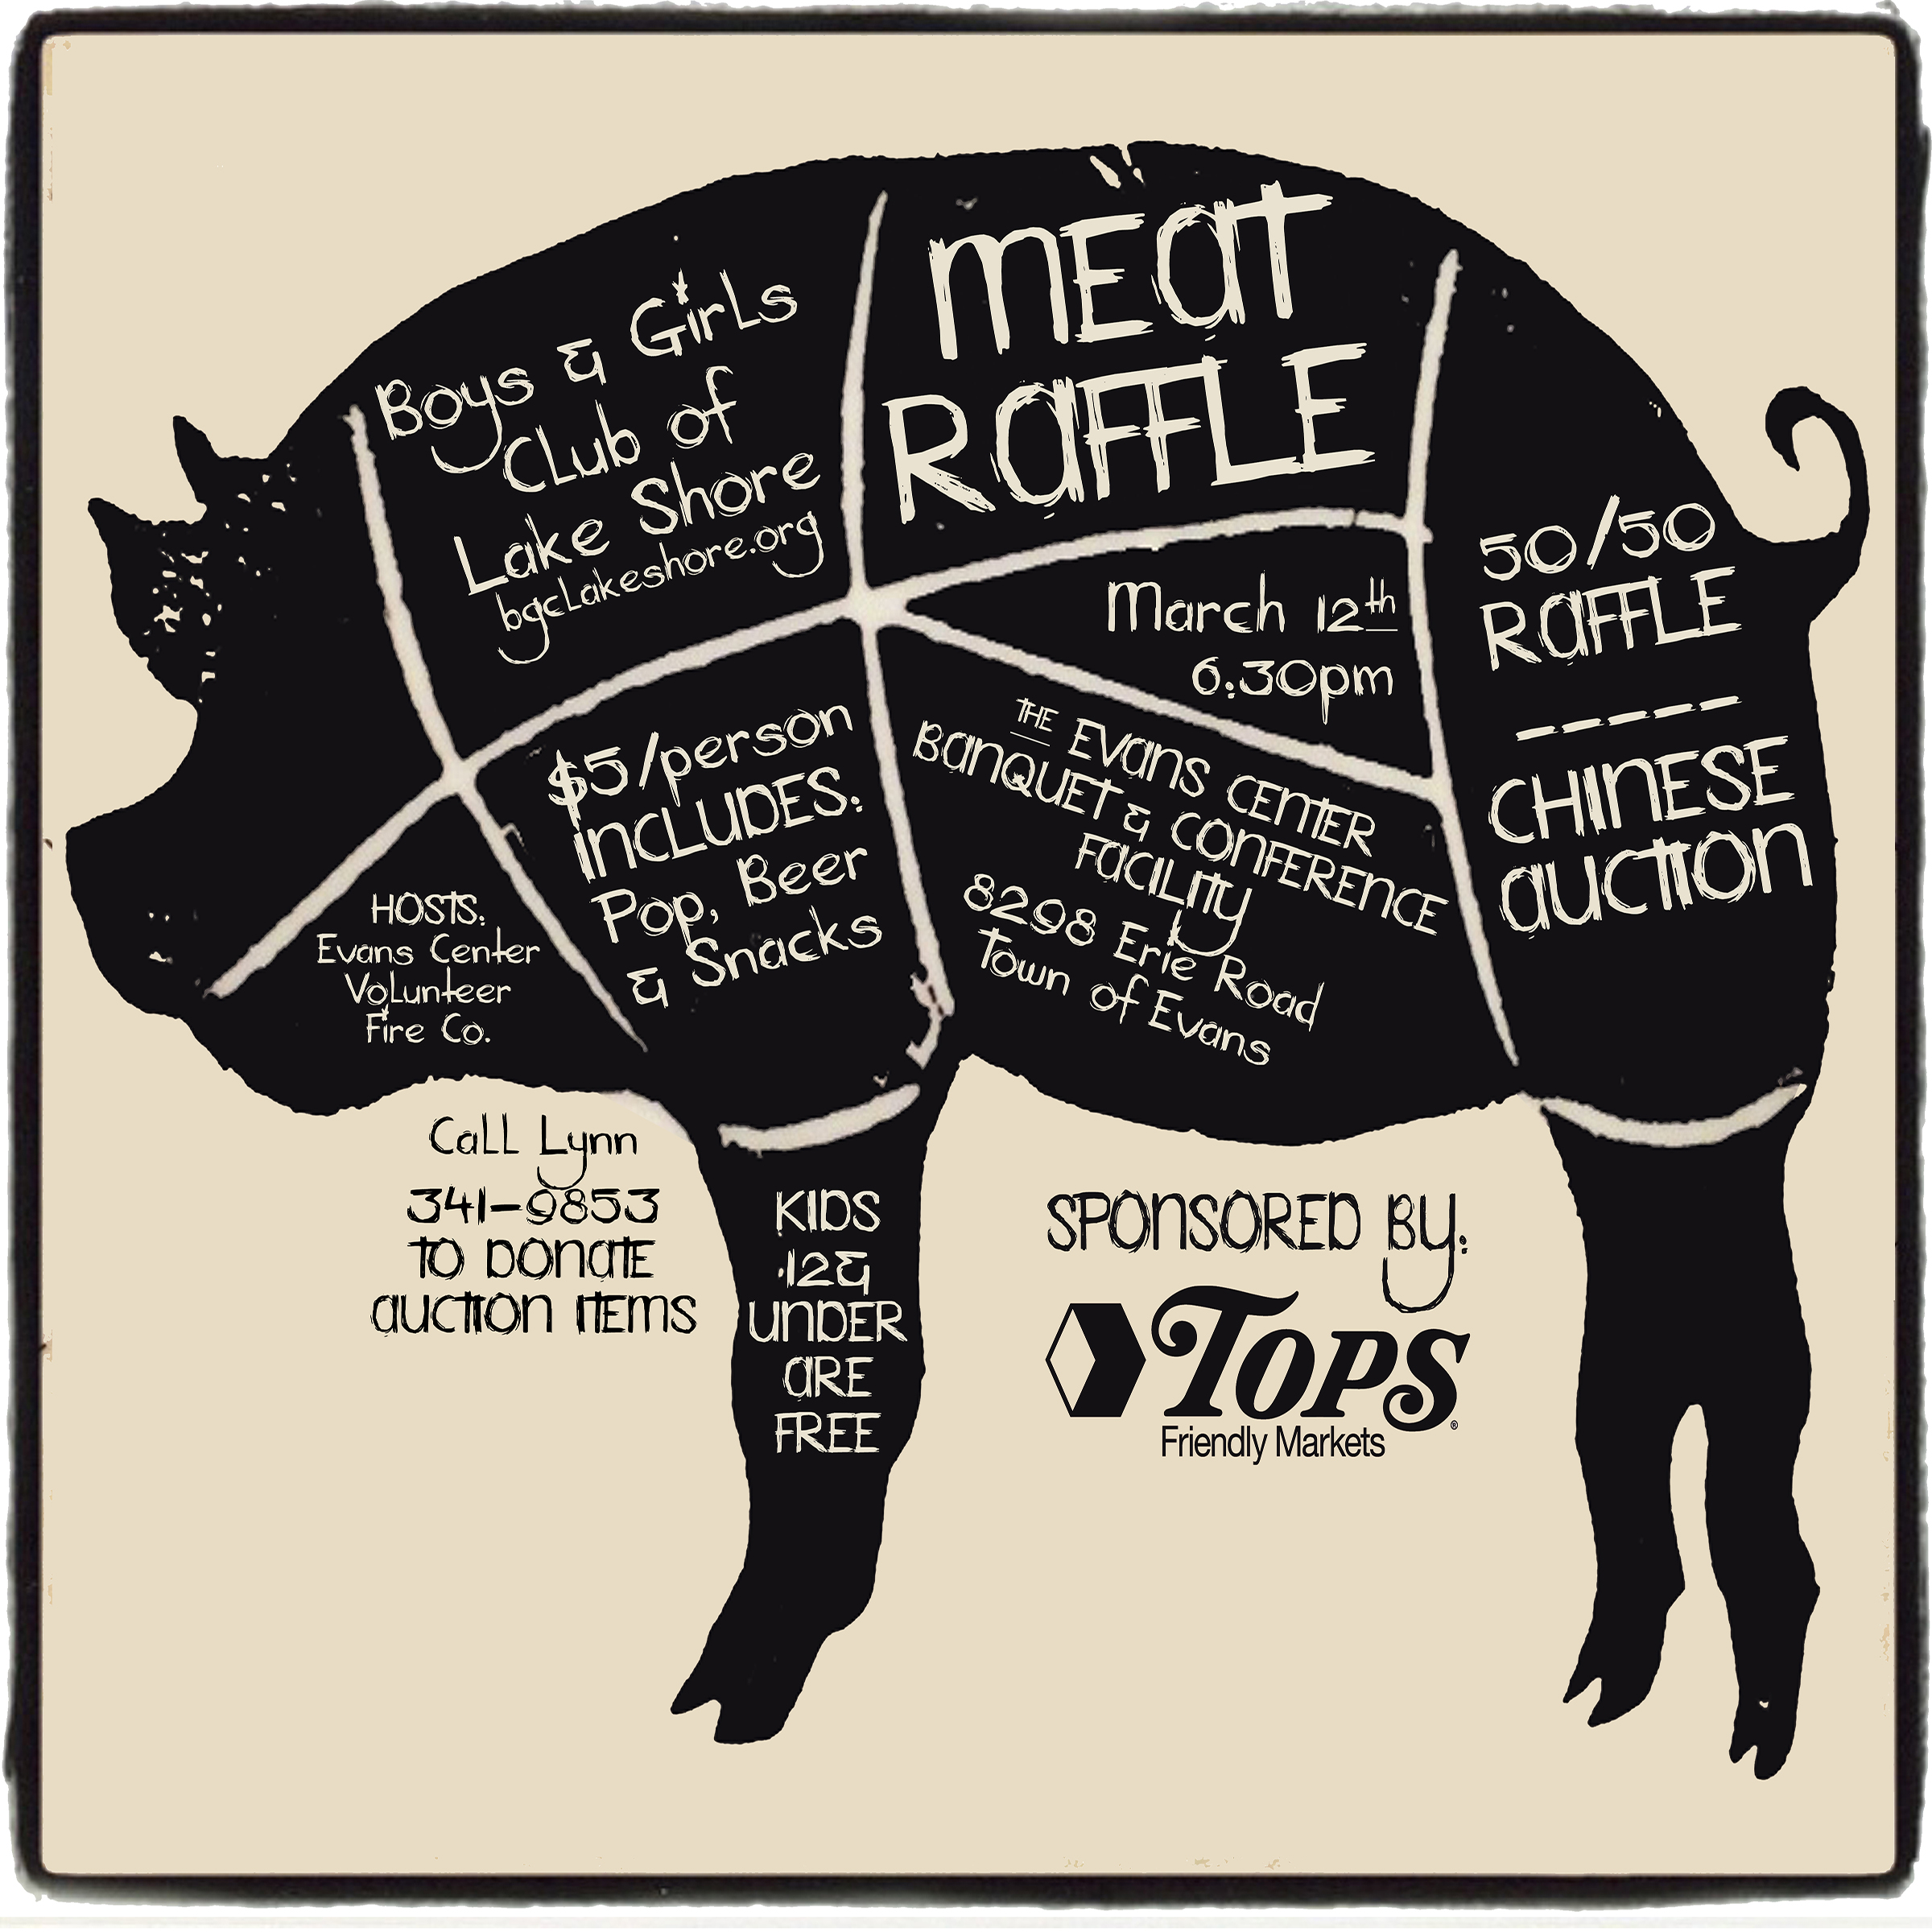 Boys & Girls
Club of
Lake Shore
bgclakeshore.org
MEAT
RAFFLE
March 12th
6:30pm
50/50
RAFFLE
------
CHINESE
AUCTION
$5/person
INCLUDES:
Pop, Beer
& Snacks
THE Evans CENTER
BANQUET & CONFERENCE
FACILITY
8298 Erie Road
Town of Evans
HOSTS:
Evans Center
Volunteer
Fire Co.
Call Lynn
341-9853
TO DONATE
AUCTION ITEMS
KIDS
12 &
UNDER
ARE
FREE
SPONSORED BY:
TOPS®
Friendly Markets